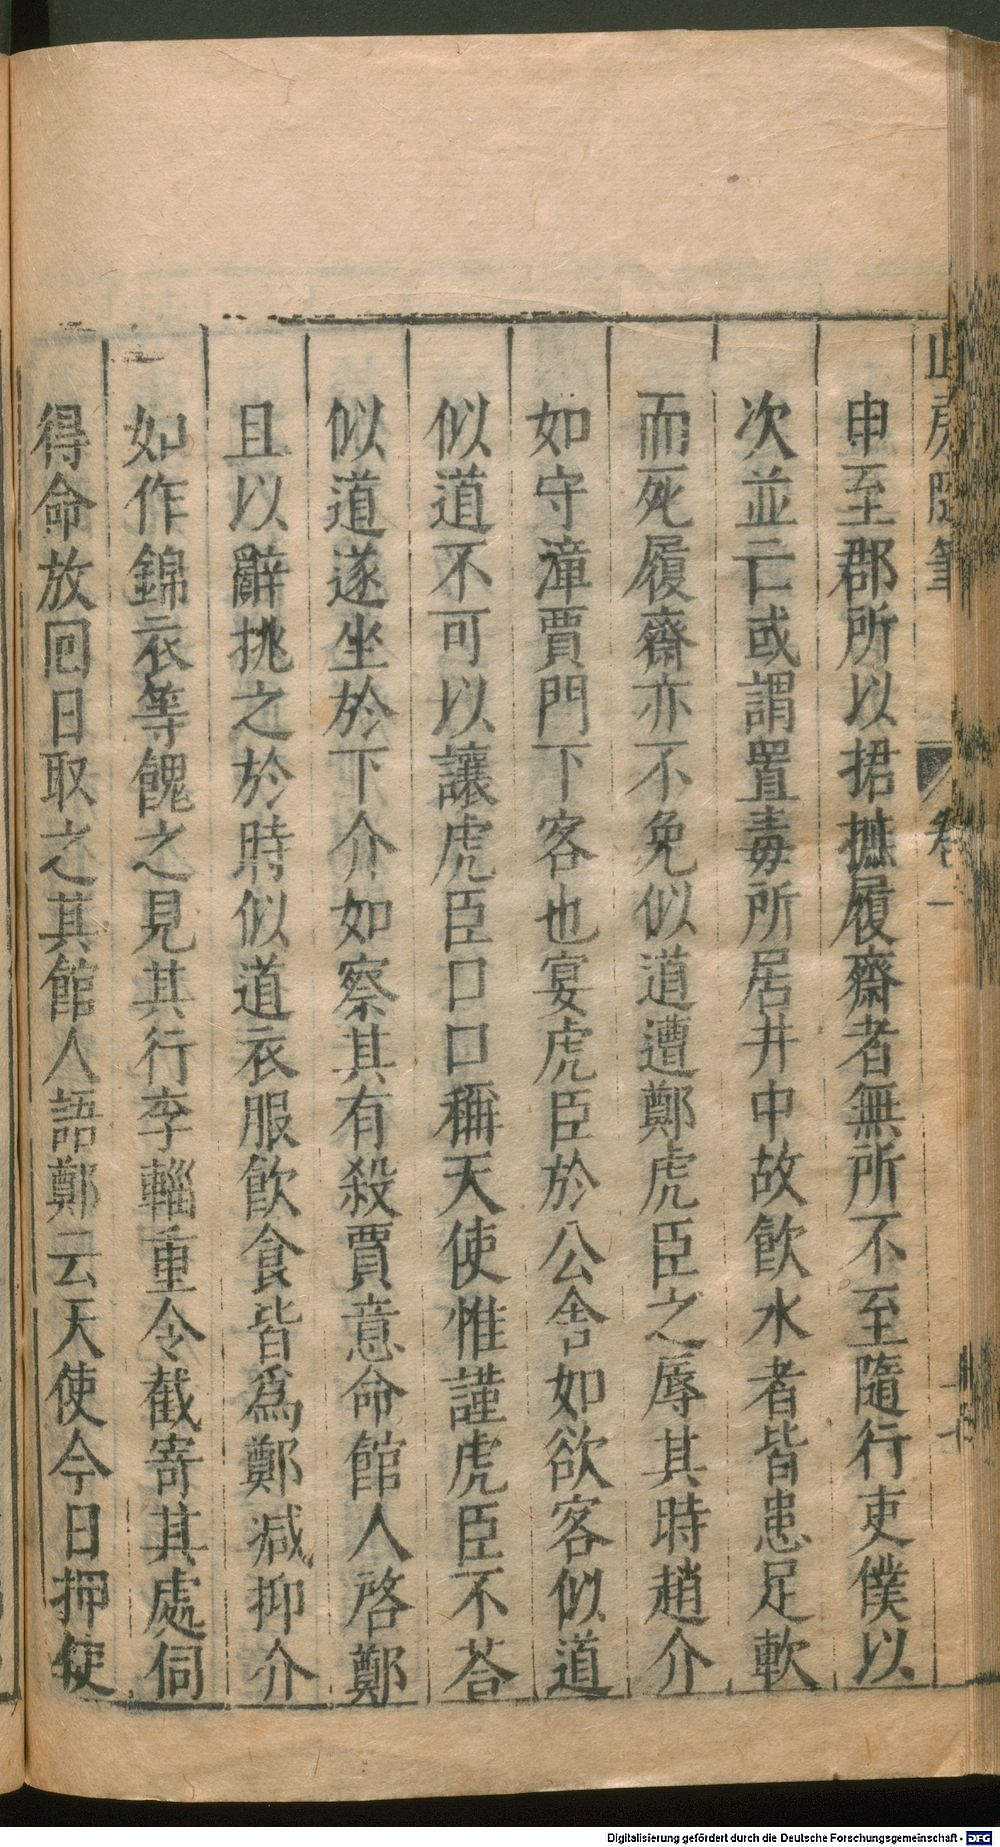 山房隨筆 卷一
申至郡所以捃摭履齋者無所不至隨行吏僕以
次並亡或謂置毒所居井中故飲水者皆患足軟
而死履齋亦不免似道遭鄭虎臣之辱其時趙介
如守漳賈門下客也宴虎臣於公舍如欲客似道
似道不可以讓虎臣口口稱天使惟謹虎臣不荅
似道遂坐於下介如察其有殺賈意命館人啓鄭
且以辭挑之於時似道衣服飲食皆爲鄭减抑介
如作錦衣等餽之見其行李輜重令截寄其處伺
得命放囘日取之其館人語鄭云天使今日押使
Digitalisierung gefördert durch die Deutsche Forschungsgemeinschaft - DFG